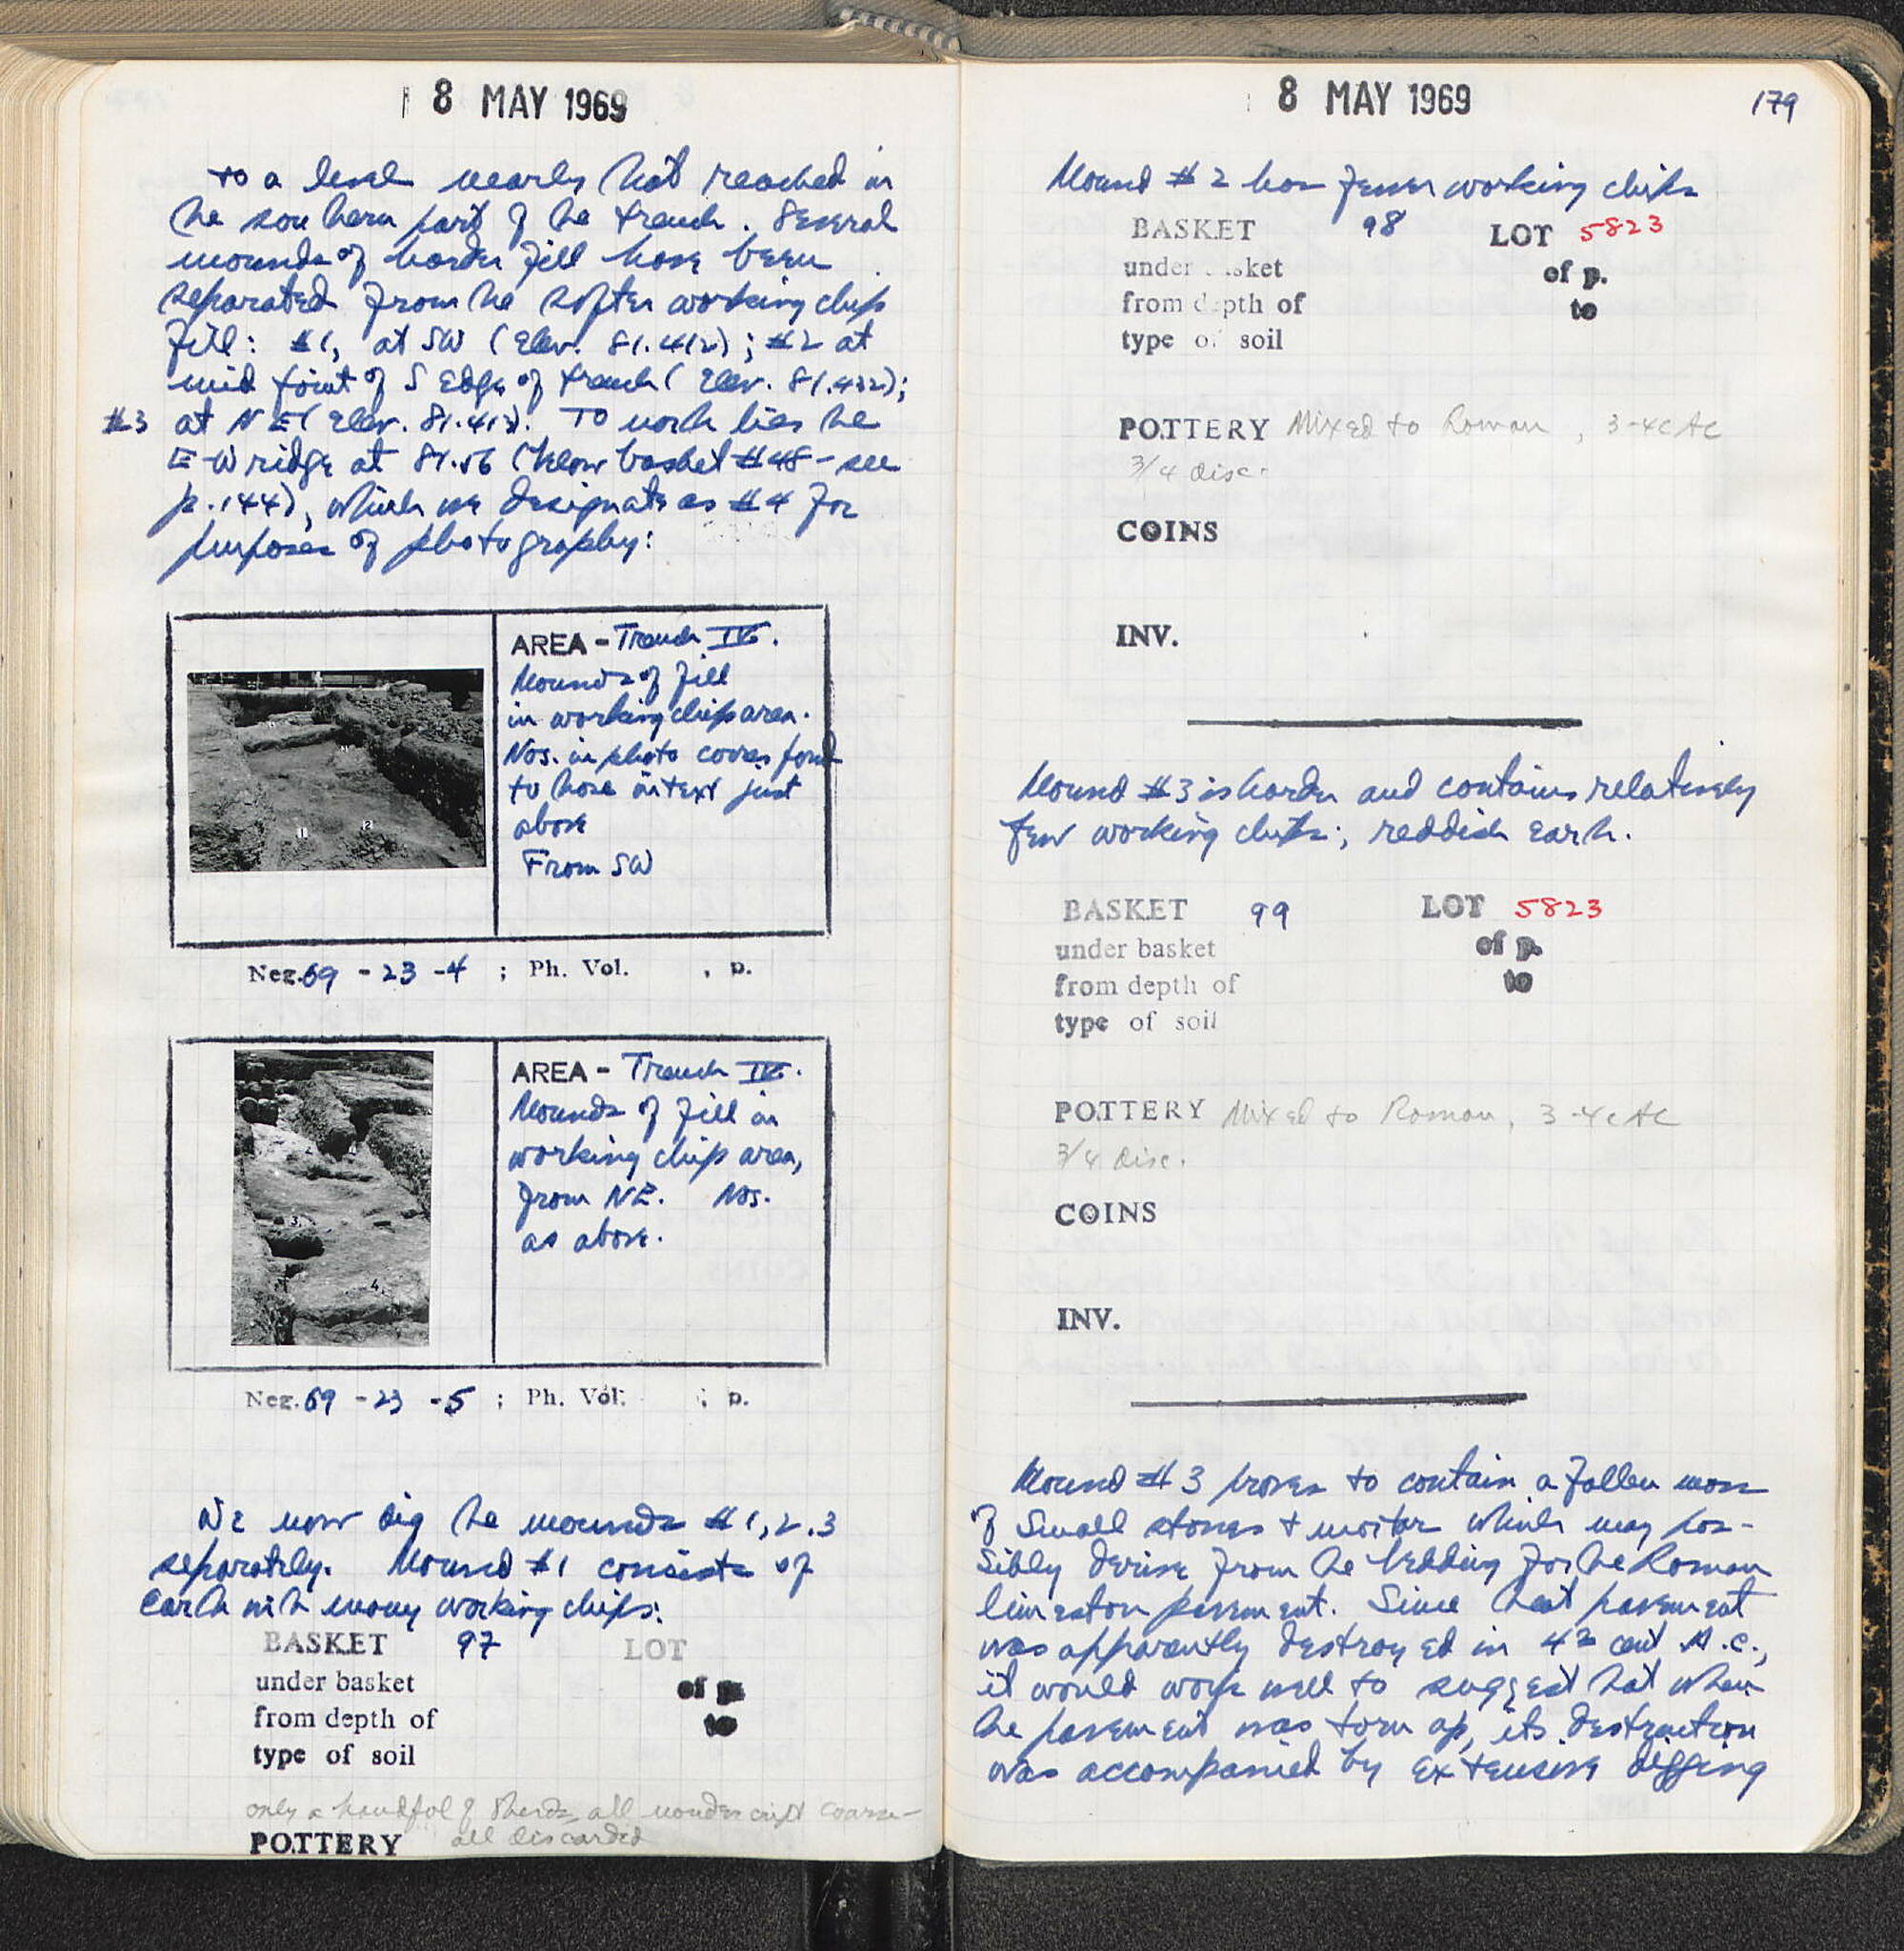 8 MAY 1969
to a level nearly that reached in
the southern part of the trench. Several
mounds of harder fill have been
separated from the softer working chip
fill: #1, at SW (Elev. 81.412); #2 at
mid point of S Edge of trench (Elev. 81.422);
#3 at NE (Elev. 81.413). To north lies the
E-W ridge at 81.56 (below basket #48 - see
p. 144), which we designate as #4 for
purposes of photography:
AREA - Trench IV.
Mounds of fill
in working chip area.
Nos. in photo correspond
to those in text just
above
From SW
1
2
Neg. 69 - 23 - 4 ; Ph. Vol. , p.
AREA - Trench IV.
Mounds of fill in
working chip area,
from NE. Nos.
as above.
3
4
Neg. 69 - 23 - 5 ; Ph. Vol. , p.
We now dig the mounds #1, 2, 3
separately. Mound #1 consists of
Earth with many working chips:
BASKET 97 LOT
under basket of p.
from depth of to
type of soil
only a handful of sherds, all nondescript coarse -
POTTERY all discarded
8 MAY 1969
179
Mound #2 has fewer working chips
BASKET 98 LOT 5823
under basket of p.
from depth of to
type of soil
POTTERY Mixed to Roman, 3-4c AC
3/4 disc.
COINS
INV.
Mound #3 is harder and contains relatively
few working chips; reddish earth.
BASKET 99 LOT 5823
under basket of p.
from depth of to
type of soil
POTTERY Mixed to Roman, 3-4c AC
3/4 disc.
COINS
INV.
Mound #3 proves to contain a fallen mass
of small stones + mortar which may pos-
sibly derive from the bedding for the Roman
limeston pavement. Since that pavement
was apparently destroyed in 4th cent A.C.,
it would work well to suggest that when
the pavement was torn up, its destruction
was accompanied by extensive digging